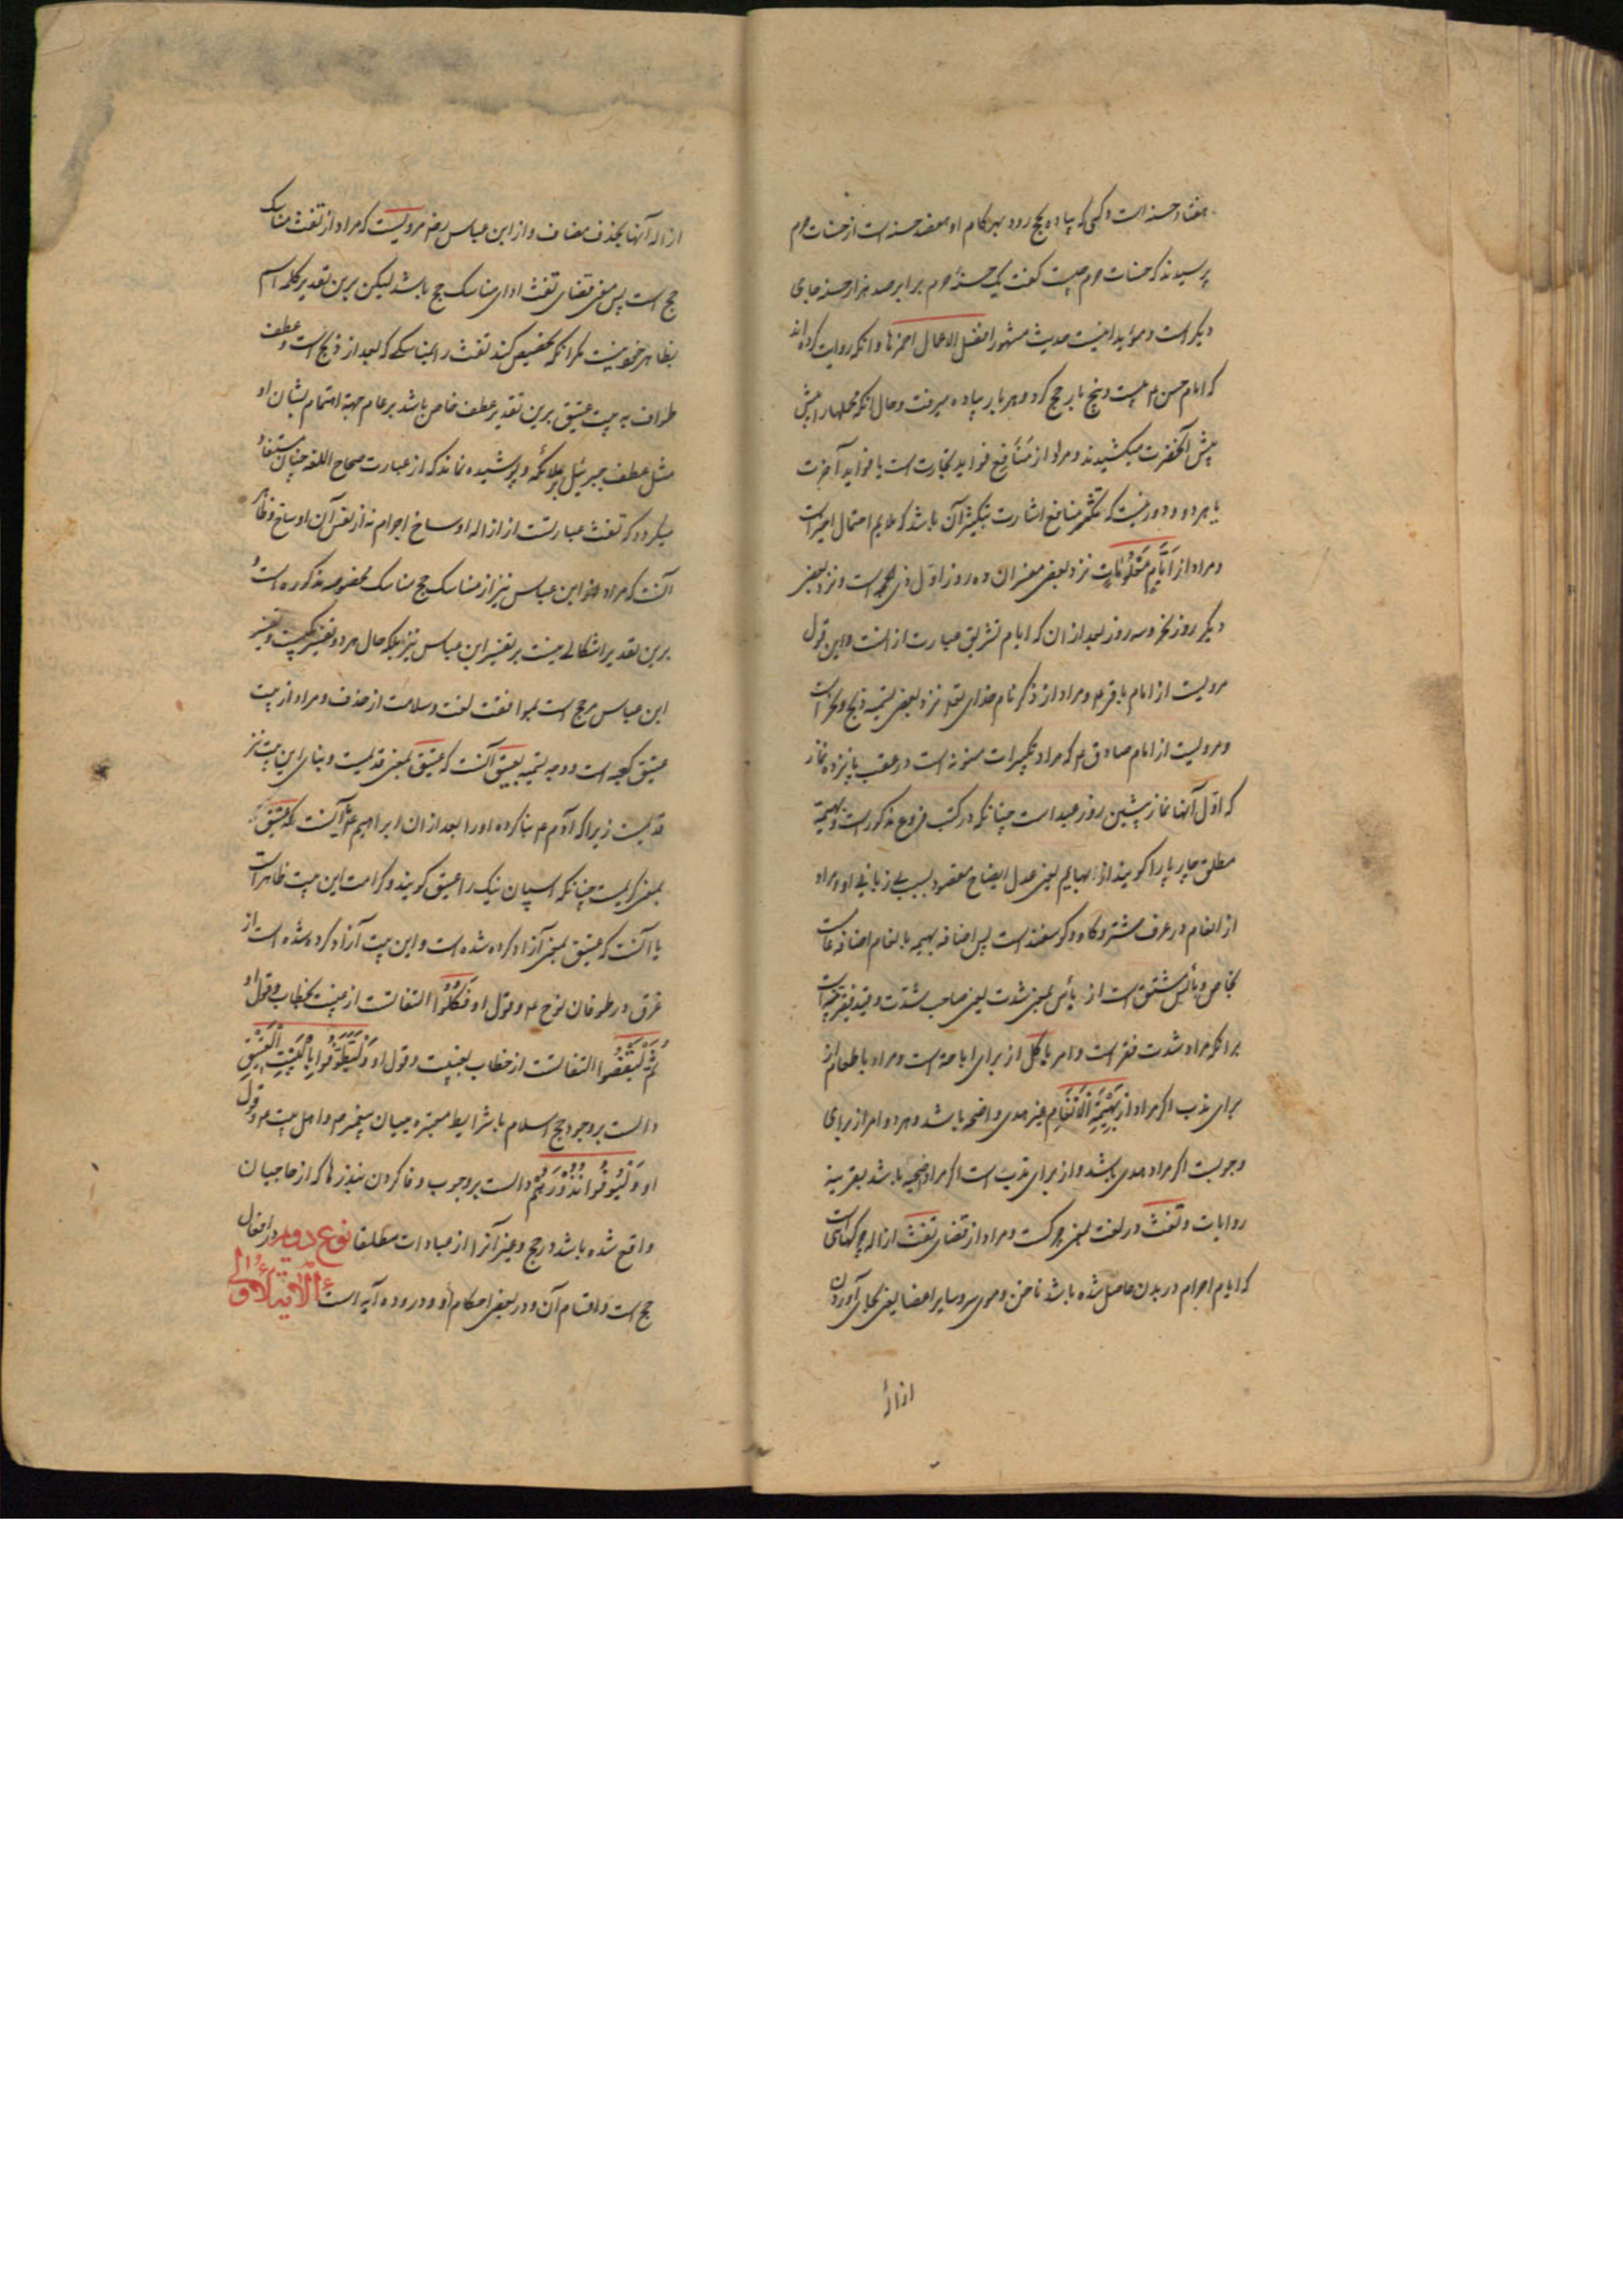 هفتاد حسنه است و کسی که پیاده بحج رود بهر کام او هفصد حسنه است از حسنات حرم
پرسیدند که حسنات حرم چیست کفت یک حسنهٔ حرم برابر صد هزار حسنه جای
دیکر است و مؤید اینست حدیث مشهور افضل الاعمال احمزها و انکه روایت کرده‌اند
که امام حسن ع بیست و پنج بار حج کرد و هر بار پیاده میرفت و حال انکه محملها را پیش
پیش آنحضرت میکشیدند و مراد از مَنَافِع فواید تجارت است یا فواید آخرت
یا هر دو و دور نیست که تنکیر منافع اشارت بتکثیر آن باشد که ملایم احتمال اخیر است
و مراد از اَیَّامٍ مَعْلُومَاتٍ نزد بعض مفسران ده روز اول ذی الحجه است و نزد بعض
دیکر روز نحر و سه روز بعد از ان که ایام تشریق عبارت از انست و این قول
مرویست از امام باقر ع و مراد از ذکر نام خدای تعالی نزد بعضی تسمیه ذبح و نحر است
و مرویست از امام صادق ع که مراد تکبیرات مسنونه است در عقب پانزده نماز
که اول آنها نماز پیشین روز عید است چنانکه در کتب فروع مذکور است و بهیمة
مطلق چارپا را کویند از ابهام یعنی عدل ایضاح مقصود بسبب بی زبانی او و مراد
از انعام در عرف شتر و کاو و کوسفند است پس اضافه بهیمه بانعام اضافه عامست
بخاص و بائس مشتق است از بأس بمعنی شدت یعنی صاحب شدت و قید فقیر
برانکه مراد شدت فقر است و امر باکل از برای اباحة است و مراد باطعام از
برای ندب اکر مراد از بَهِیْمَةِ الْاَنْعَامِ غیر هدی و اضحیه باشد و هر دو امر از برای
وجوبست اکر مراد هدی باشد و از برای ندبست اکر مراد اضحیه باشد بقرینه
روایات و تفث در لغت بمعنی چرکست و مراد از قضای تفث ازاله چرکهای است
که ایام احرام در بدن حاصل شده باشد ناخن و موی سر و سایر اعضا یعنی بجای آوردن
ازالهٔ
ازاله آنها بحذف مضاف و از ابن عباس رض مرویست که مراد از تفث مناسک
حج است پس معنی قضای تفث ادای مناسک حج باشد لیکن برین تقدیر کلمه ثم
بظاهر خوب نیست مکر انکه تخصیص کنند تفث را بمناسکی که بعد از ذبح است و عطف
طواف به بیت عتیق برین تقدیر عطف خاص باشد بر عام جهة اهتمام بشان او
مثل عطف جبرئیل بر ملائکه و پوشیده نماند که از عبارت صحاح اللغه چنان مستفاد
میکردد که تفث عبارتست از ازاله اوساخ احرام نه از نفس آن اوساخ و ظاهر
آنست که مراد ابن عباس نیز از مناسک حج مناسک مخصوصه مذکوره است و
برین تقدیر اشکالی نیست بر تفسیر ابن عباس نیز بلکه حال هر دو تفسیر یکیست و تفسیر
ابن عباس مرجح است بموافقت لغت و سلامت از حذف و مراد از بیت
عتیق کعبه است و وجه تسمیه بعتیق آنست که عتیق بمعنی قدیمست و بنای این بیت نیز
قدیمست زیرا که آدم ع بنا کرده او را بعد از ان ابراهیم ع یا آنست که عتیق
بمعنی کریمست چنانکه اسپان نیک را عتیق کویند و کرامت این بیت ظاهر است
یا آنست که عتیق بمعنی آزاد کرده شده است و این بیت آزاد کرده شده است از
غرق در طوفان نوح ع و قول او فَکُلُوا التفاتست از غیبت بخطاب و قول او
ثُمَّ لْیَقْضُوا التفاتست از خطاب بغیبت و قول او وَلْیَطَّوَّفُوا بِالْبَیْتِ الْعَتِیْقِ
دالست بر وجوب حج اسلام با شرایط معتبره میان پیغمبر ص و اهل بیت ع و قول
او وَلْیُوفُوا نُذُوْرَهُمْ دالست بر وجوب وفا کردن بنذرها که از حاجیان
واقع شده باشد در حج و غیر آن از عبادات مطلقا نوع دویم در افعال
حج است و اقسام آن و در بعض احکام او و در و ده آیه است الآیة الاولی